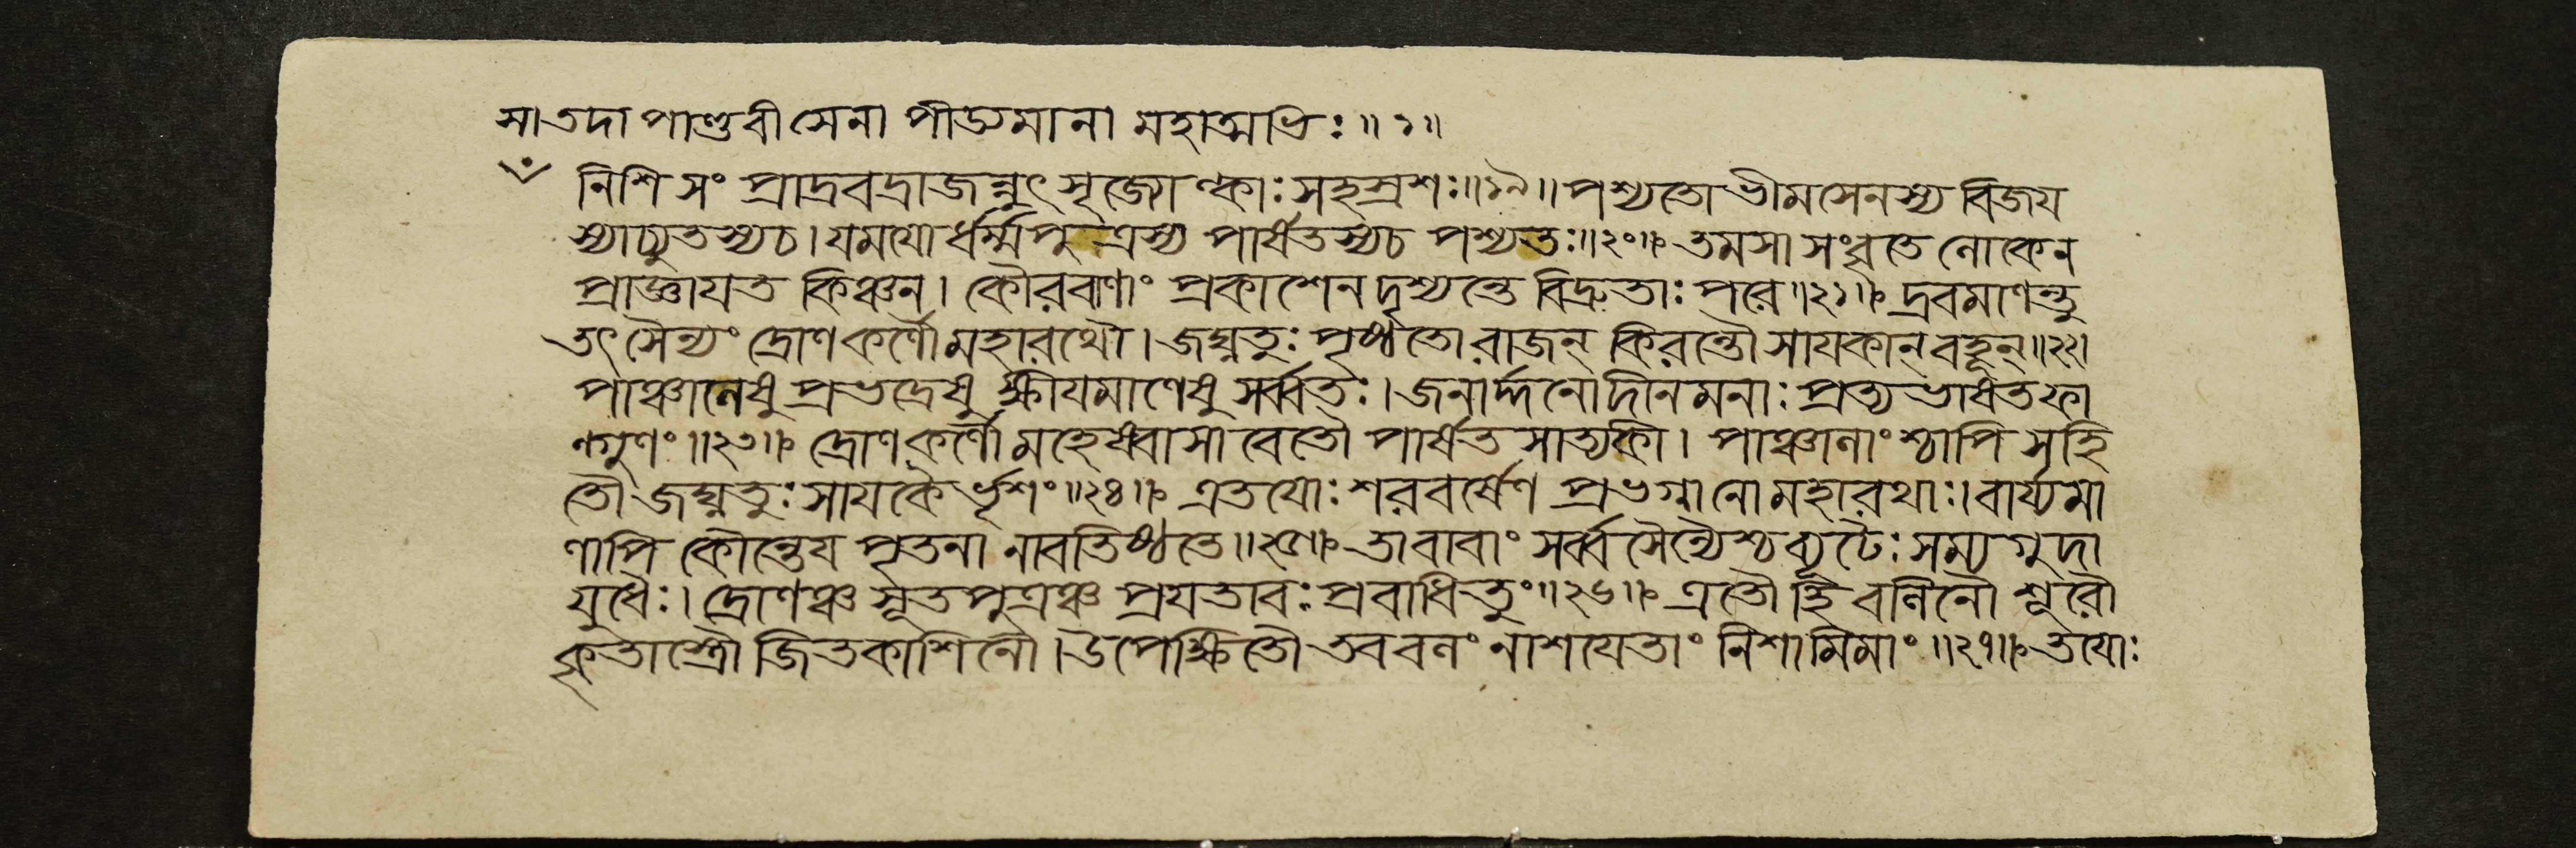 সা তদা পাণ্ডবী সেনা পীড্যমানা মহাত্মভিঃ ॥ ১ ॥
নিশি সং প্রাদ্রবদ্রাজন্নুৎসৃজ্যোল্কাঃ সহস্রশঃ ॥১৯॥ পশ্যতো ভীমসেনস্য বিজয
স্যাচ্যুতস্যচ । যমযো র্ধর্ম্মপুত্রস্য পার্ষতস্যচ পশ্যতঃ ॥২০॥ তমসা সংবৃতে লোকে ন
প্রাজ্ঞাযত কিঞ্চন । কৌরবাণাং প্রকাশেন দৃশ্যন্তে বিদ্রুতাঃ পরে ॥২১॥ দ্রবমাণন্তু
তৎ সৈন্যং দ্রোণকর্ণৌ মহারথৌ । জঘ্নতুঃ পৃষ্ঠতো রাজন্ কিরন্তৌ সাযকান্ বহূন্ ॥২২।
পাঞ্চালেষু প্রভদ্রেষু ক্ষীযমাণেষু সর্ব্বতঃ । জনার্দ্দনো দীনমনাঃ প্রত্যভাষত ফা
ল্গুণং ॥২৩॥ দ্রোণকর্ণৌ মহেষ্বাসা বেতৌ পার্ষত সাত্যকী । পাঞ্চালাংশ্চাপি সহি
তৌ জঘ্নতুঃ সাযকৈ র্ভৃশং ॥২৪॥ এতযোঃ শরবর্ষেণ প্রভগ্না নো মহারথাঃ । বার্য্যমা
ণাপি কৌন্তেয পৃতনা নাবতিষ্ঠতে ॥২৫॥ তাবাবাং সর্ব্বসৈন্যৈশ্চ ব্যূঢৈঃ সম্যগুদা
যুধৈঃ । দ্রোণঞ্চ সূতপুত্রঞ্চ প্রযতাবঃ প্রবাধিতুং ॥২৬॥ এতৌ হি বলিনৌ শূরৌ
কৃতাস্ত্রৌ জিতকাশিনৌ । উপেক্ষিতৌ তব বলং নাশযেতাং নিশামিমাং ॥২৭॥ তযোঃ